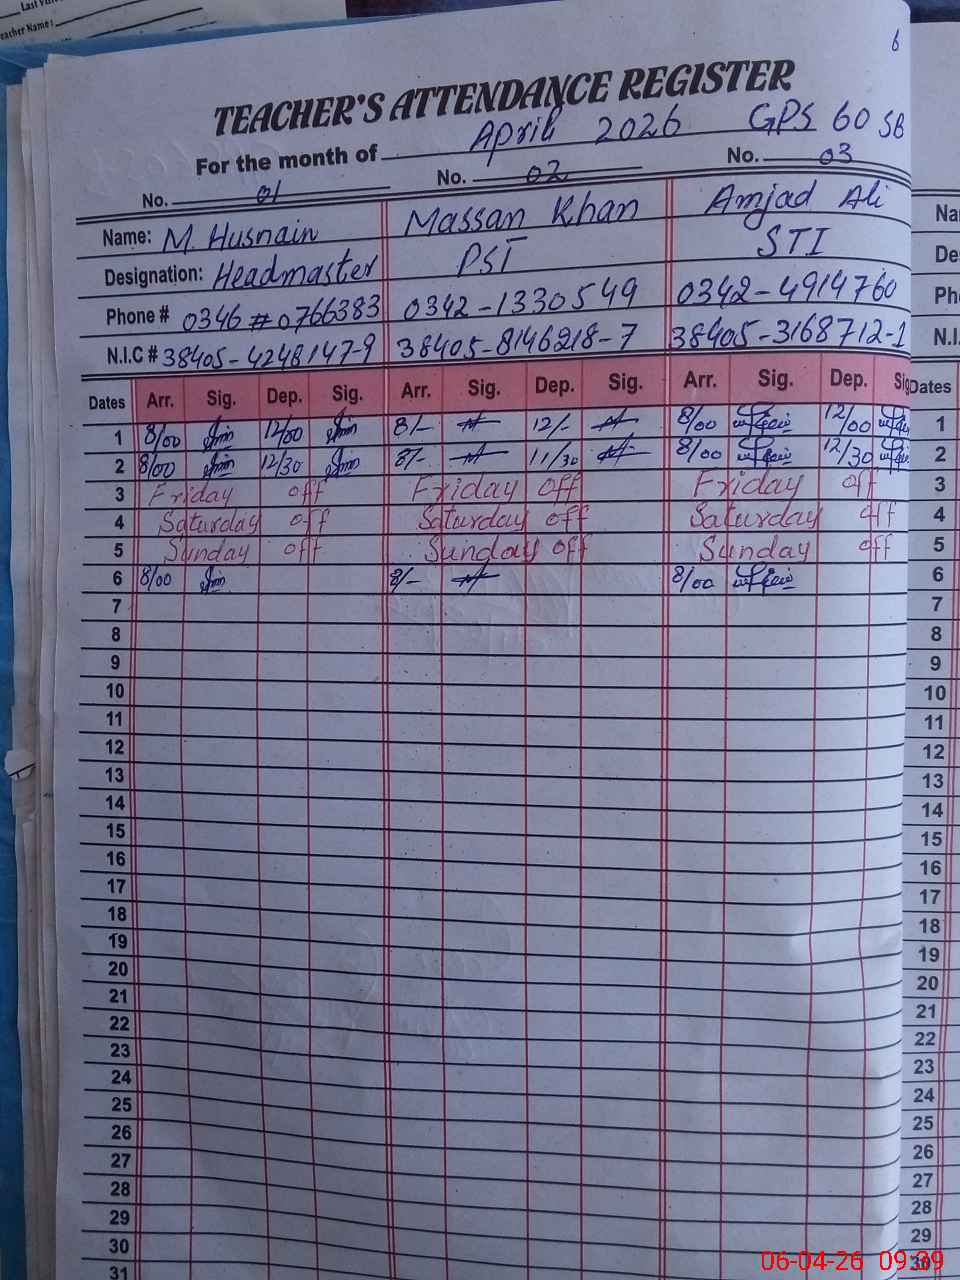 Teacher Name:
6
TEACHER'S ATTENDANCE REGISTER
For the month of April 2026 GPS 60 SB
No. 01 No. 02 No. 03
Name: M. Husnain Massan Khan Amjad Ali
Designation: Headmaster PST STI
Phone # 0346 # 0766383 0342-1330549 0342-4914760
N.I.C # 38405-4248147-9 38405-8146218-7 38405-3168712-1
Dates Arr. Sig. Dep. Sig. Arr. Sig. Dep. Sig. Arr. Sig. Dep. Sig Dates
1 8/00 12/00 8/- 12/- 8/00 12/00 1
2 8/00 12/30 8/- 11/30 8/00 12/30 2
3 Friday off Friday off Friday off 3
4 Saturday off Saturday off Saturday off 4
5 Sunday off Sunday off Sunday off 5
6 8/00 8/- 8/00 6
7 7
8 8
9 9
10 10
11 11
12 12
13 13
14 14
15 15
16 16
17 17
18 18
19 19
20 20
21 21
22 22
23 23
24 24
25 25
26 26
27 27
28 28
29 29
30 30
31
06-04-26 09:39